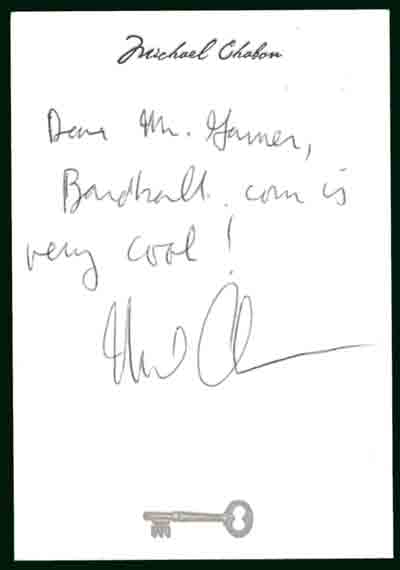 Michael Chabon
Dear Mr. Garner,
Bardball.com is
very cool!